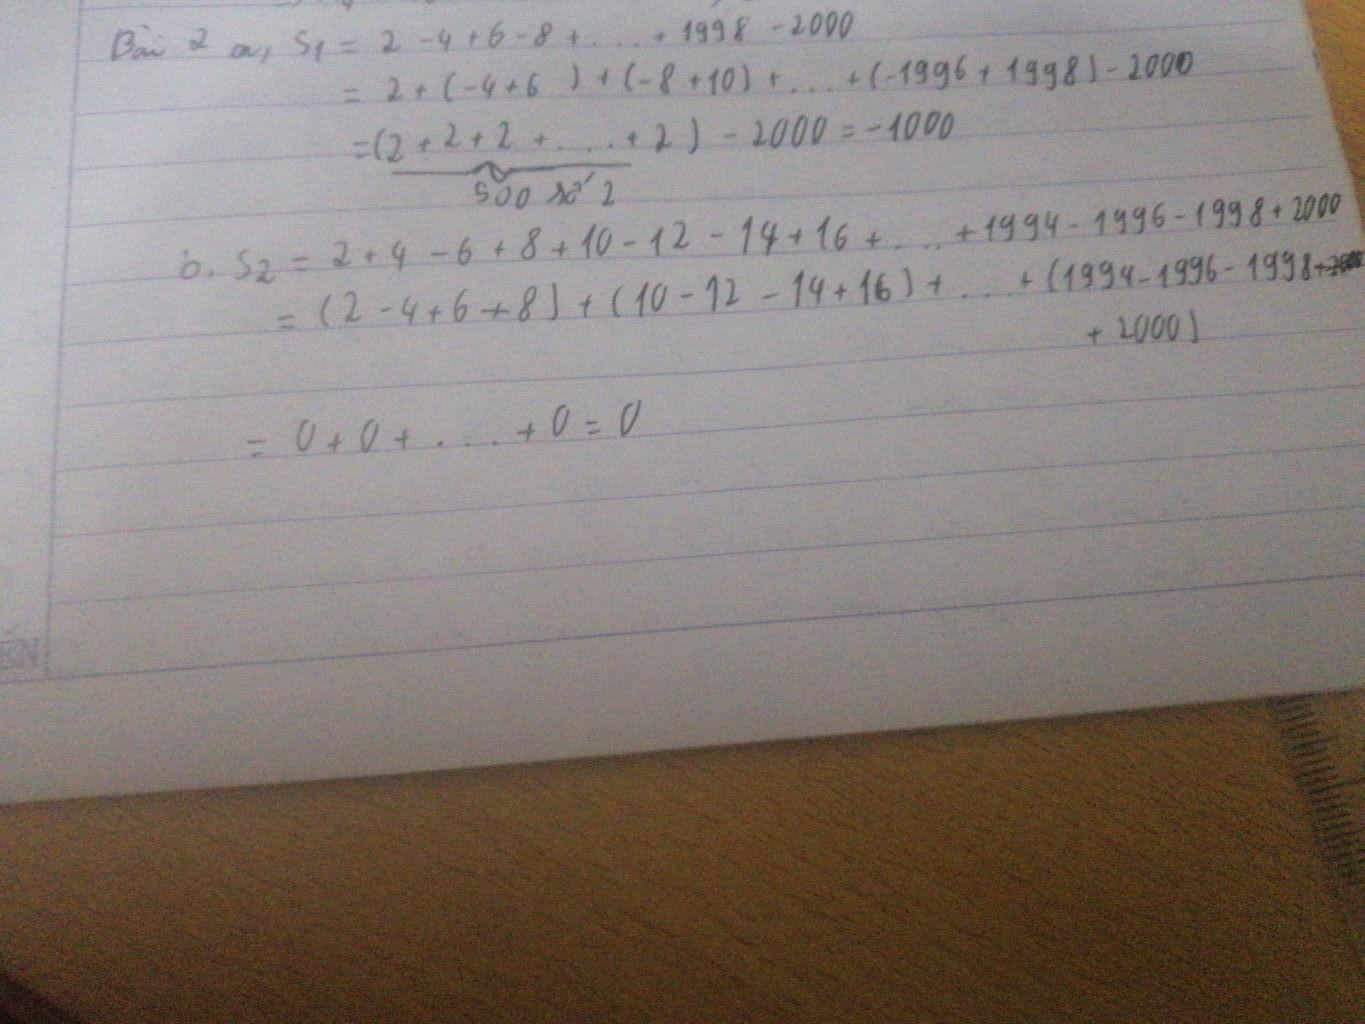 Bài 2 a, S1 = 2 - 4 + 6 - 8 + .... + 1998 - 2000
= 2 + (-4 + 6 ) + (-8 + 10) + .... + (-1996 + 1998) - 2000
= (2 + 2 + 2 + .... + 2) - 2000 = -1000
500 số 2
b. S2 = 2 + 4 - 6 + 8 + 10 - 12 - 14 + 16 + .... + 1994 - 1996 - 1998 + 2000
= (2 - 4 + 6 + 8) + (10 - 12 - 14 + 16) + .... + (1994 - 1996 - 1998
+ 2000)
= 0 + 0 + .... + 0 = 0